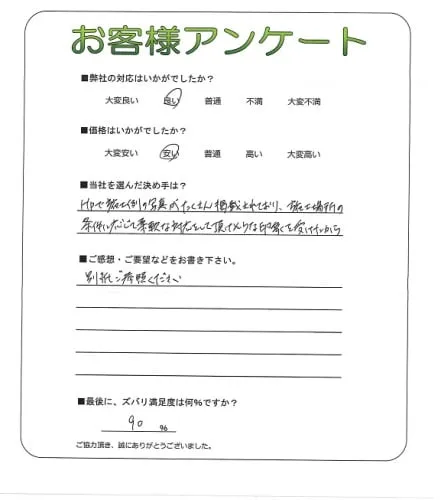 お客様アンケート
■弊社の対応はいかがでしたか？
大変良い 良い 普通 不満 大変不満
■価格はいかがでしたか？
大変安い 安い 普通 高い 大変高い
■当社を選んだ決め手は？
HPで施工例の写真がたくさん掲載されており、施工場所の
条件に応じて柔軟な対応をして頂けそうな印象を受けたから
■ご感想・ご要望などをお書き下さい。
別紙ご参照ください
■最後に、ズバリ満足度は何%ですか？
90 %
ご協力頂き、誠にありがとうございました。